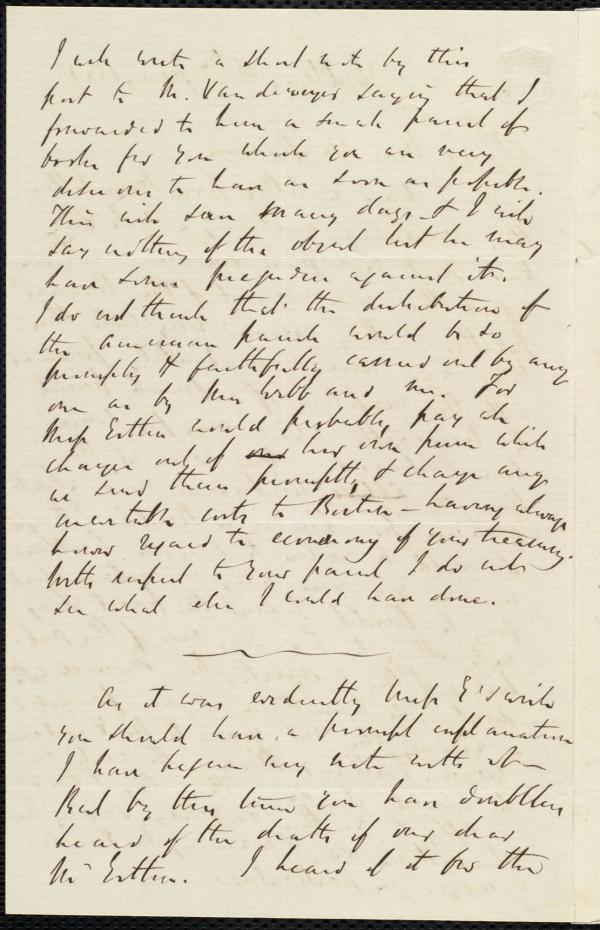 I will write a short note by this
post to M. Van de weyer saying that I
forwarded to him a small parcel of
books for you which you are very
desirous to have as soon as possible.
This will save many days & I will
say nothing of the object lest he may
have some prejudice against it.
I do not think that the distribution of
the American parcels would be so
promptly & faithfully carried out by any
one as by Miss Webb and me. For
Miss Estlin would probably pay all
charges out of her own purse while
we send them promptly, & charge any
inevitable costs to Boston – having always
due regard to economy of your treasury.
With respect to your parcel I do not
see what else I could have done.
As it was evidently Miss E's wish
you should have a prompt explanation
I have begun my note with it –
But by this time you have doubtless
heard of the death of our dear
Mr Estlin. I heard of it for the